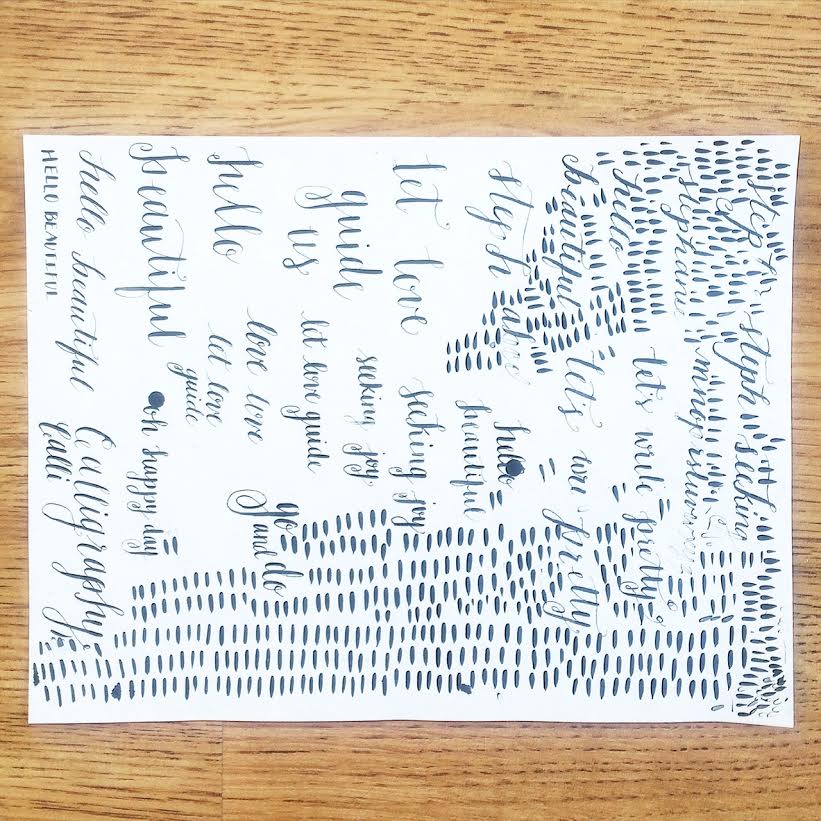 steph seeking
hello let's write pretty
beautiful let's wri pretty
steph
hello
beautiful
let love seeking joy
guide seeking joy
us let love guide
go
and do
hello love love
let love
guide
beautiful oh happy day
hello beautiful Calligraphy
HELLO BEAUTIFUL Calli